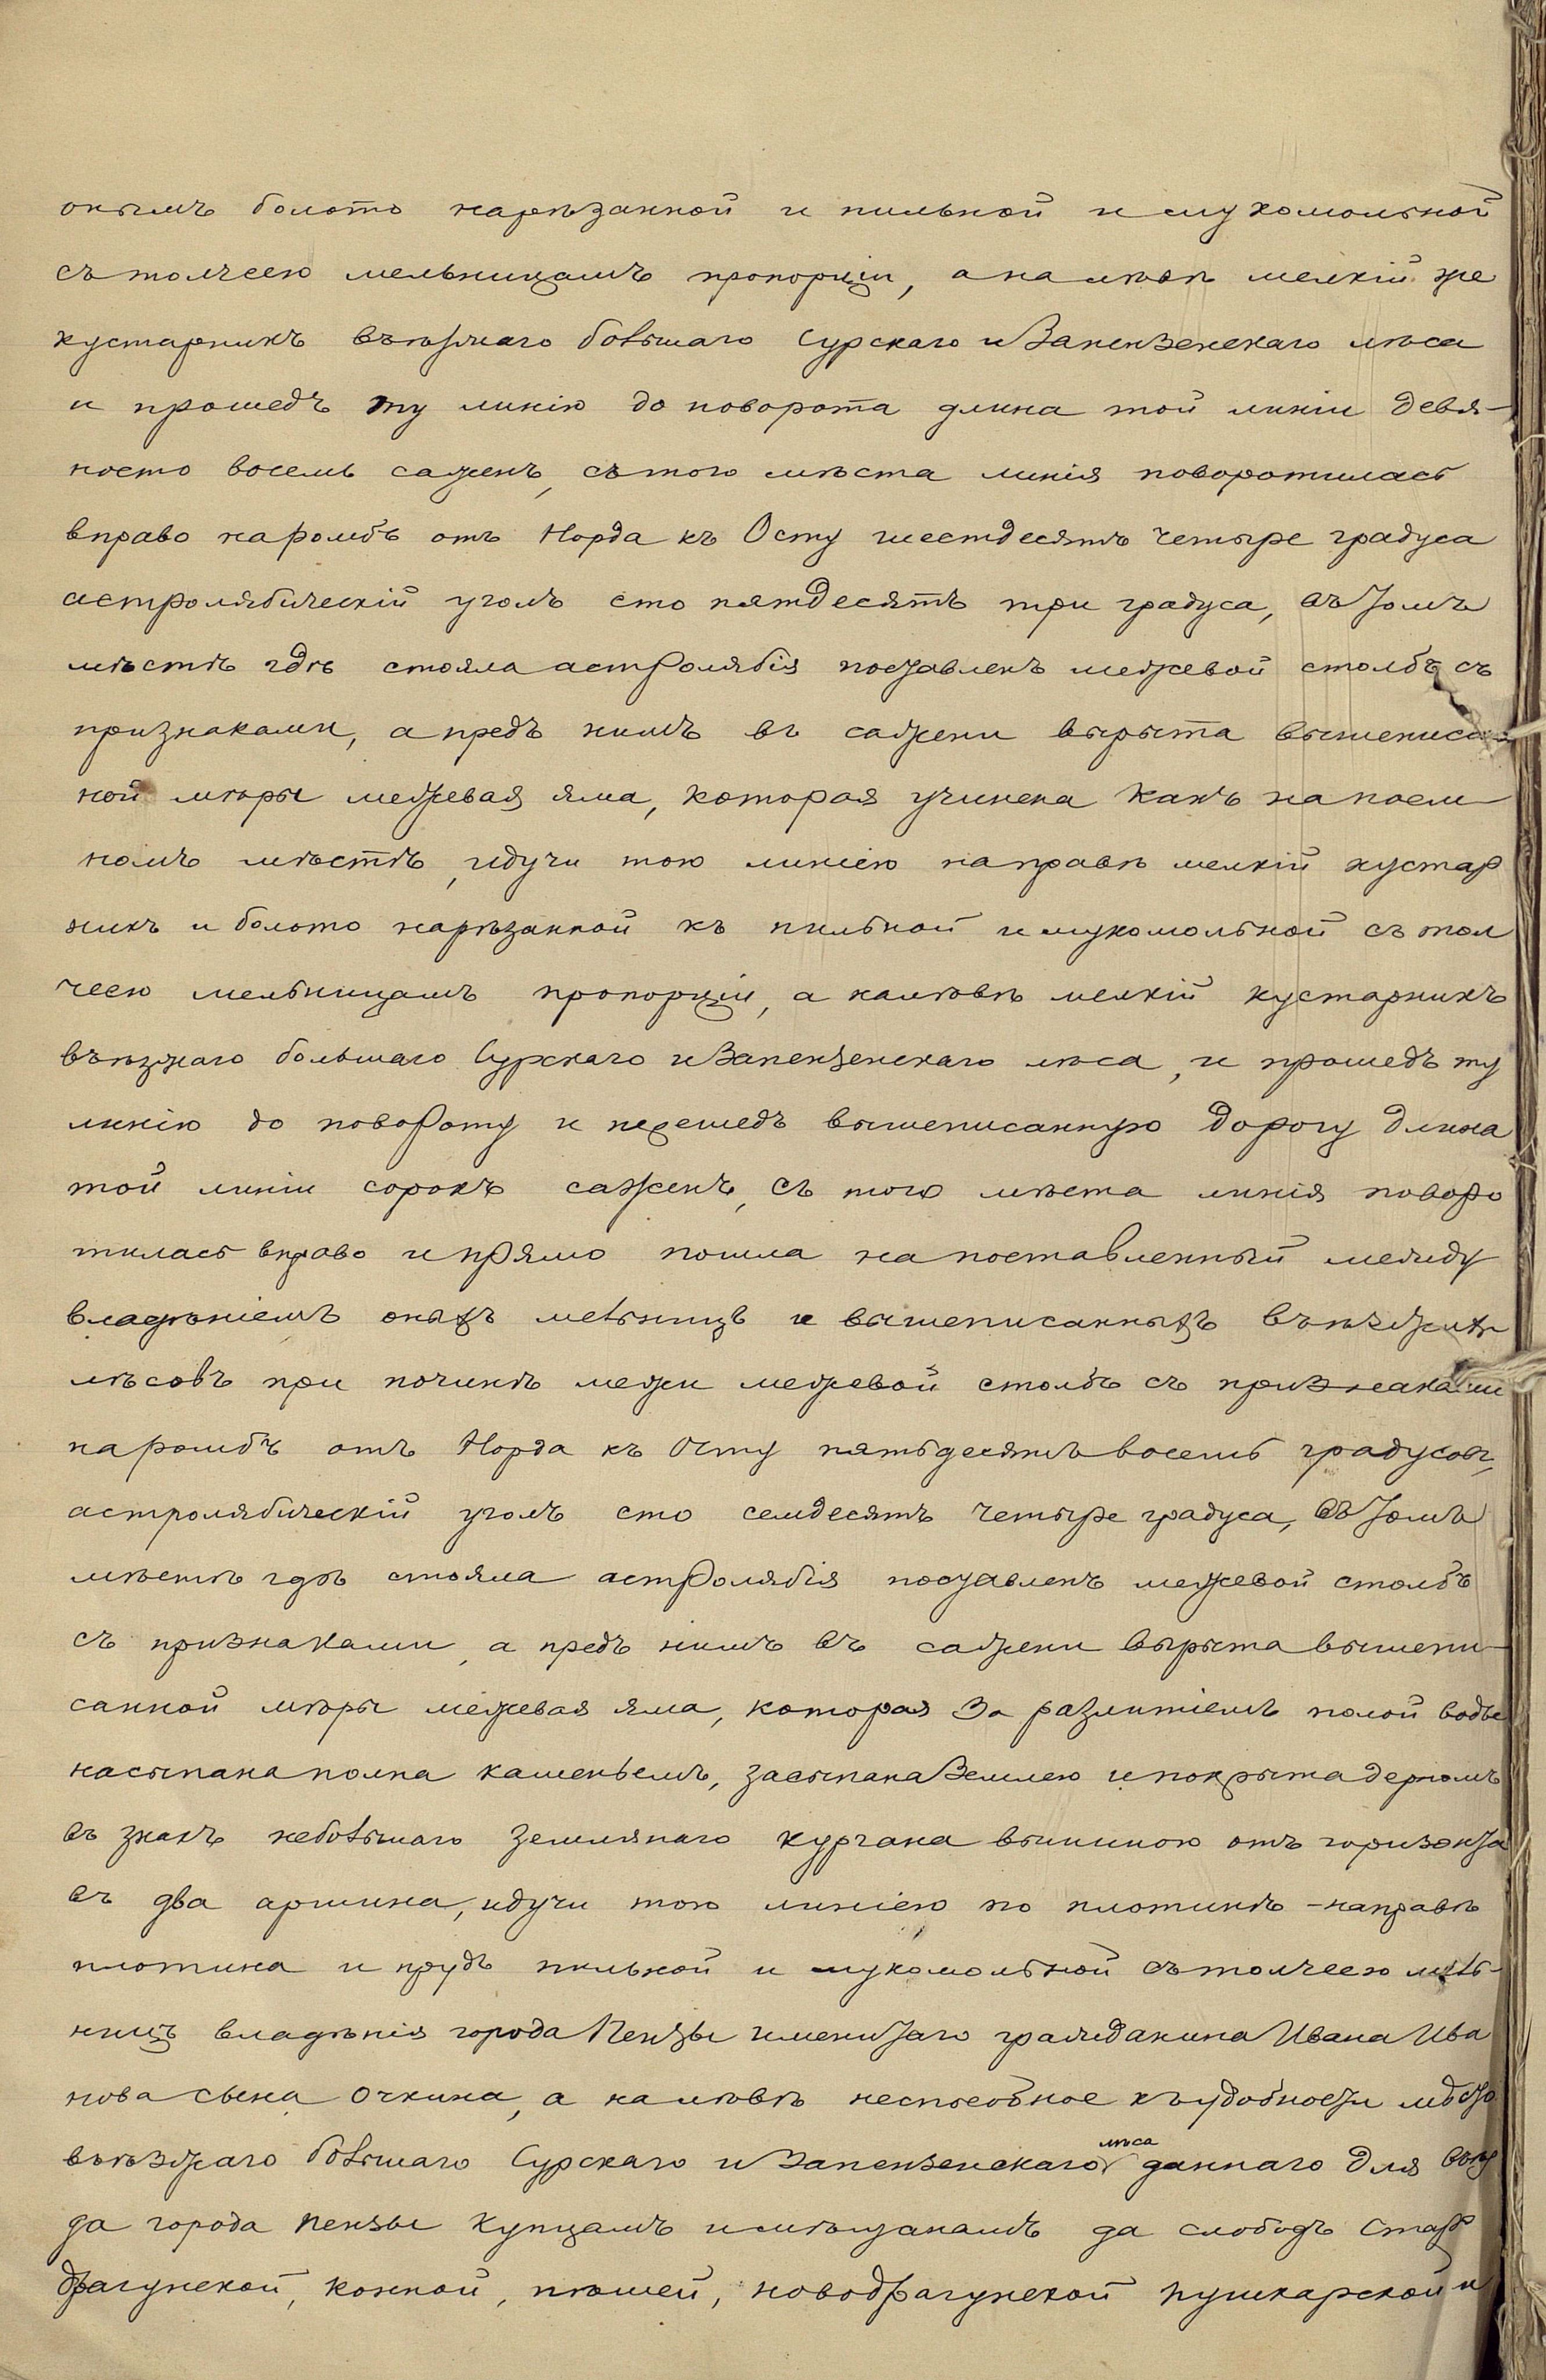 онымъ болото нарѣзанной и пильной и мукомольной
съ толчеею мельницамъ пропорціи, а налѣвѣ мелкій же
кустарникъ въѣзжаго большаго Сурскаго и Запензенскаго лѣса
и прошедъ ту линію до поворота длина той линіи девя-
носто восемь саженъ, съ того мѣста линія поворотилась
вправо на ромбъ отъ Норда къ Осту шестдесятъ четыре градуса
астролябическій уголъ сто пятдесятъ три градуса, въ томъ
мѣстѣ гдѣ стояла астролябія поставленъ межевой столбъ съ
признаками, а предъ нимъ въ сажени вырыта вышеписан
ной мѣры межевая яма, которая учинена какъ на поем
номъ мѣстѣ, идучи тою линіею на правѣ мелкій кустар
никъ и болото нарѣзанной къ пильной и мукомольной съ тол
чеею мельницамъ пропорціи, а налѣвѣ мелкій кустарникъ
въѣзжаго большаго Сурскаго и Запензенскаго лѣса, и прошедъ ту
линію до повороту и перешедъ вышеписанную дорогу длина
той линіи сорокъ саженъ, съ того мѣста линія поворо
тилась вправо и прямо пошла на поставленный между
владѣніемъ оныхъ мельницъ и вышеписанныхъ въѣзжихъ
лѣсовъ при починкѣ межи межевой столбъ съ признаками
на ромбъ отъ Норда къ Осту пятьдесятъ восемь градусовъ,
астролябическій уголъ сто семдесятъ четыре градуса, въ томъ
мѣстѣ гдѣ стояла астролябія поставленъ межевой столбъ
съ признаками, а предъ нимъ въ сажени вырыта вышепи-
санной мѣры межевая яма, которая за разлитіемъ полой воды
насыпана полна каменьемъ, засыпана землею и покрыта дерномъ
въ знакъ небольшаго землянаго кургана вышиною отъ горизонта
въ два аршина, идучи тою линіею по плотинѣ - направѣ
плотина и прудъ пильной и мукомольной съ толчеею мель-
ницъ владѣнія города Пензы именитаго гражданина Ивана Ива
нова сына Очкина, а налѣвѣ неспособное къ удобности мѣсто
въѣзжаго большаго Сурскаго и Запензенскаго лѣса даннаго для въѣз
да города Пензы купцамъ и мѣщанамъ да слободъ Стар
драгунской, конной, пѣшей, новодрагунской пушкарской и